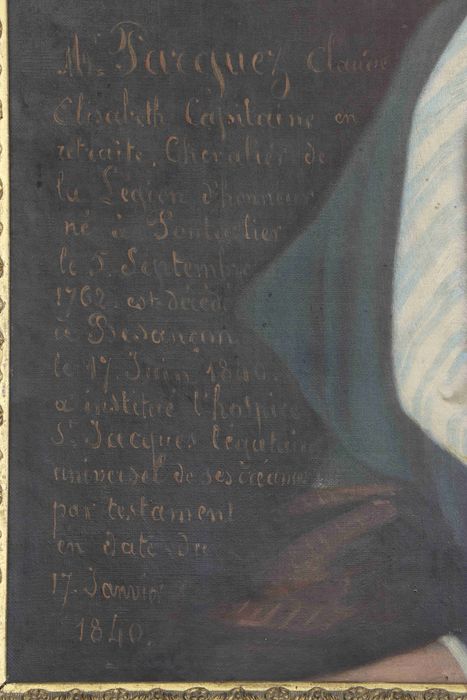 Mr. Parquez Claude
Elisabeth Capitaine en
retraite, Chevalier de
la Légion d'honneur
né à Pontarlier
le 5. Septembre
1762. est décédé
à Besançon
le 17. Juin 1840.
a institué l'hospice
St. Jacques légataire
universel de ses
par testament
en date du
17. Janvier
1840.